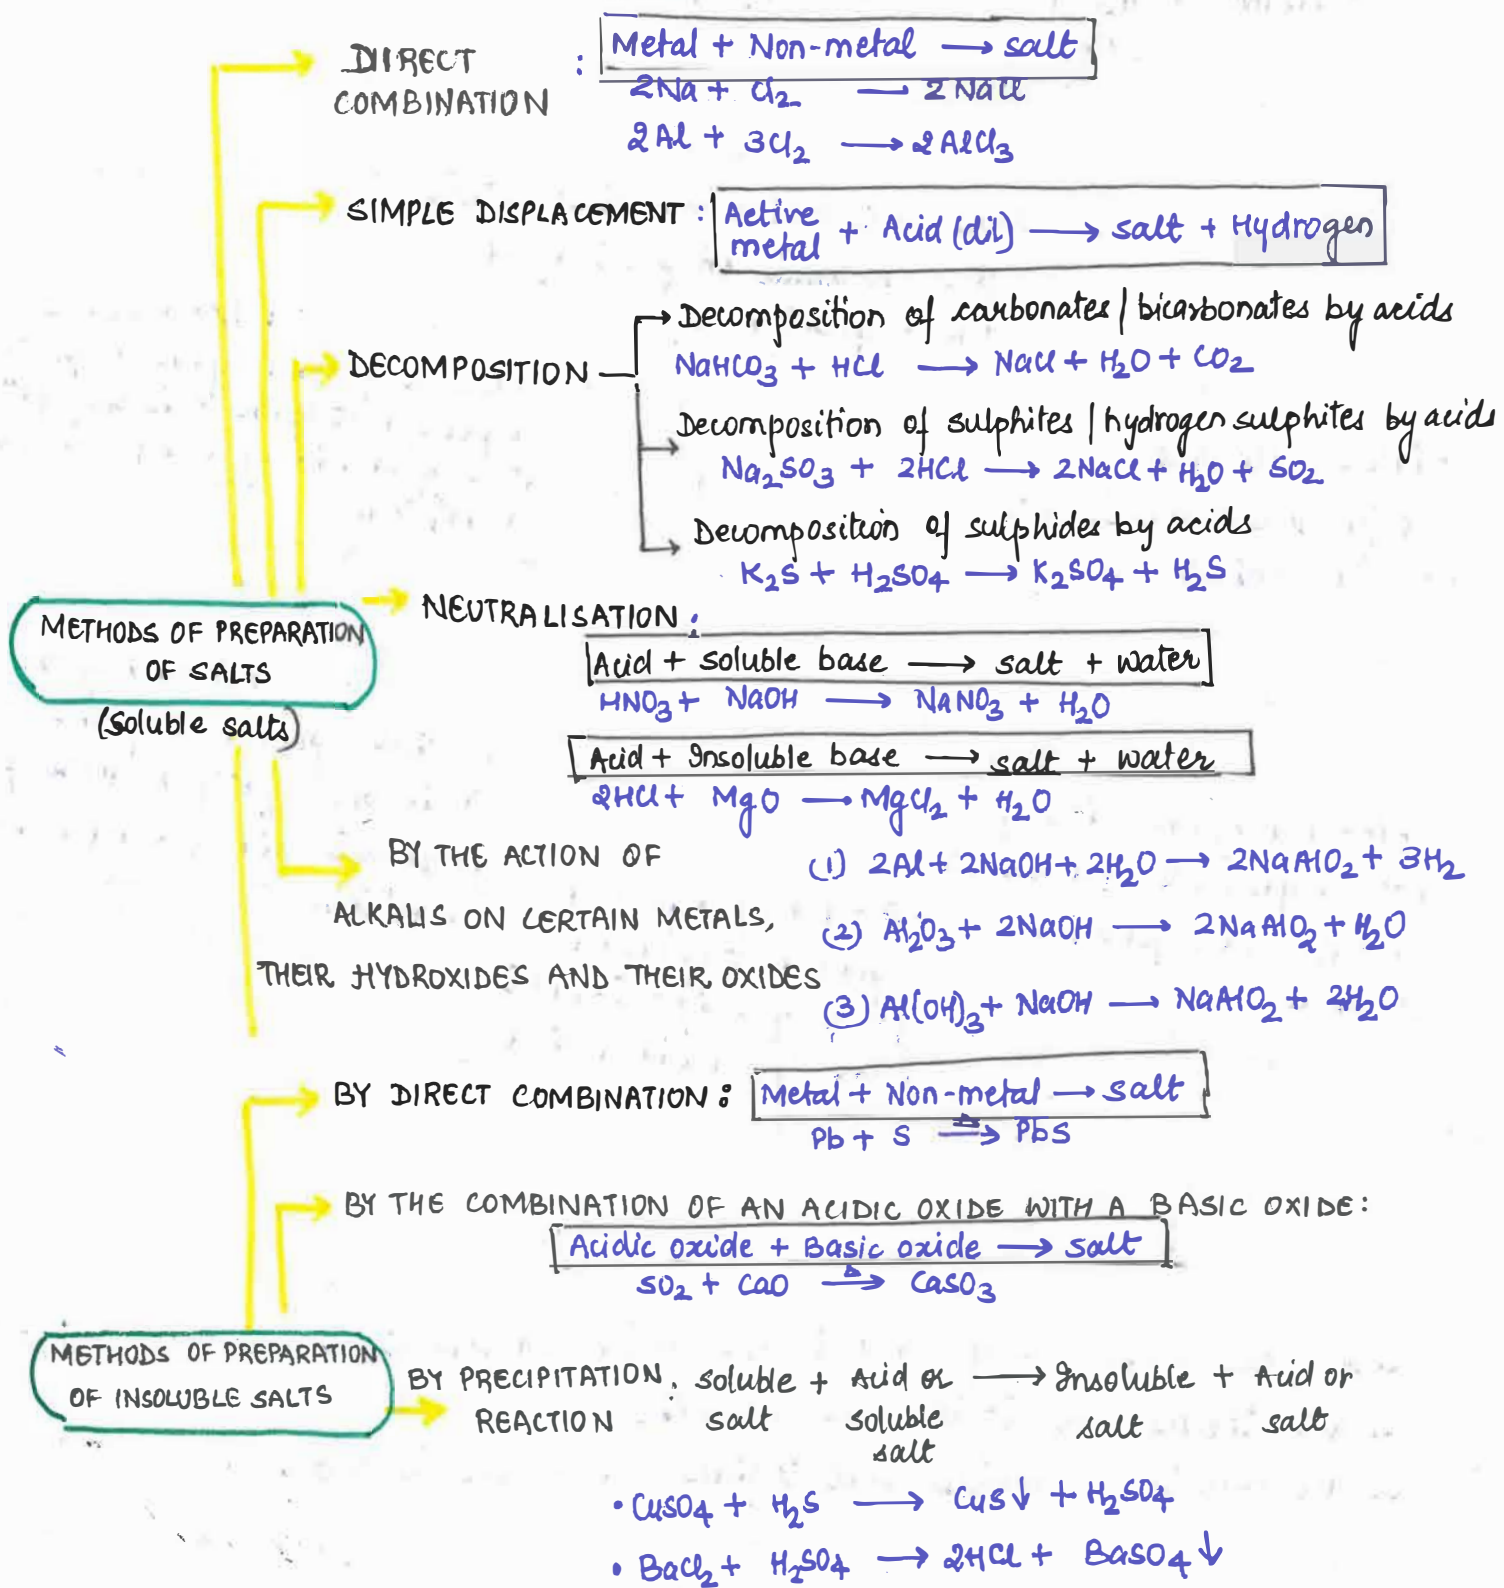 DIRECT COMBINATION : Metal + Non-metal ⟶ salt
2Na + Cl₂ ⟶ 2NaCl
2Al + 3Cl₂ ⟶ 2AlCl₃
SIMPLE DISPLACEMENT : Active metal + Acid (dil) ⟶ salt + Hydrogen
DECOMPOSITION
Decomposition of carbonates / bicarbonates by acids
NaHCO₃ + HCl ⟶ NaCl + H₂O + CO₂
Decomposition of sulphites / hydrogen sulphites by acids
Na₂SO₃ + 2HCl ⟶ 2NaCl + H₂O + SO₂
Decomposition of sulphides by acids
K₂S + H₂SO₄ ⟶ K₂SO₄ + H₂S
METHODS OF PREPARATION
OF SALTS
(Soluble salts)
NEUTRALISATION :
Acid + soluble base ⟶ salt + water
HNO₃ + NaOH ⟶ NaNO₃ + H₂O
Acid + Insoluble base ⟶ salt + water
2HCl + MgO ⟶ MgCl₂ + H₂O
BY THE ACTION OF
ALKALIS ON CERTAIN METALS,
THEIR HYDROXIDES AND THEIR OXIDES
(1) 2Al + 2NaOH + 2H₂O ⟶ 2NaAlO₂ + 3H₂
(2) Al₂O₃ + 2NaOH ⟶ 2NaAlO₂ + H₂O
(3) Al(OH)₃ + NaOH ⟶ NaAlO₂ + 2H₂O
BY DIRECT COMBINATION : Metal + Non-metal ⟶ salt
Pb + S ⟶ Δ PbS
BY THE COMBINATION OF AN ACIDIC OXIDE WITH A BASIC OXIDE :
Acidic oxide + Basic oxide ⟶ salt
SO₂ + CaO ⟶ Δ CaSO₃
METHODS OF PREPARATION
OF INSOLUBLE SALTS
BY PRECIPITATION REACTION
soluble salt + Acid or soluble salt ⟶ Insoluble salt + Acid or salt
• CuSO₄ + H₂S ⟶ CuS↓ + H₂SO₄
• BaCl₂ + H₂SO₄ ⟶ 2HCl + BaSO₄↓